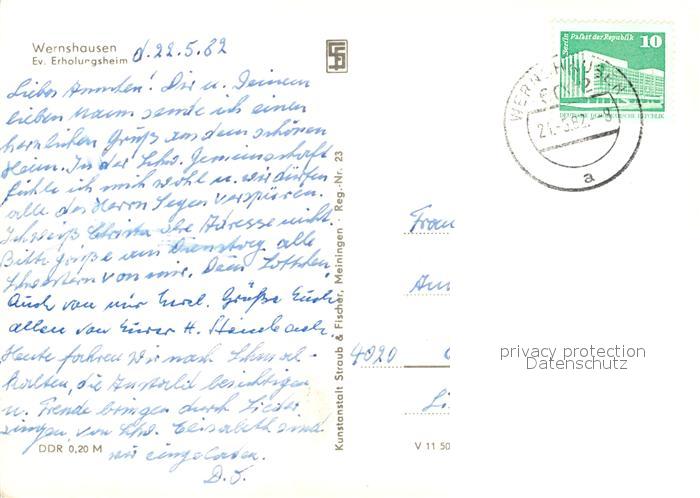 Wernshausen
Ev. Erholungsheim
d. 22.5.82
Liebes Annchen! Dir u. Deinem
lieben Mann sende ich einen
herzlichen Gruß aus dem schönen
Heim. In der Schw. Gemeinschaft
fühle ich mich wohl u. wir dürfen
alle des Herrn Segen verspüren.
Ich weiß Christa Adresse nicht
Bitte grüße am Dienstag alle
Schwestern von mir. Dein Lottchen.
Auch von mir herzl. Grüße Euch
allen von Eurer H.
Heute fahren wir nach Schmal-
kalten, die Anstalt besichtigen
u. Freude bringen durch Lieder
singen, von Schw. Elisabeth sind
wir eingeladen.
D. S.
DDR 0,20 M
Kunstanstalt Straub & Fischer, Meiningen · Reg.-Nr. 23
V 11 50
Berlin Palast der Republik 10
DEUTSCHE DEMOKRATISCHE REPUBLIK
WERNSHAUSEN
a
Frau
4020
privacy protection
Datenschutz